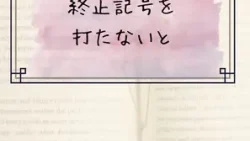 終止記号を
打たないと